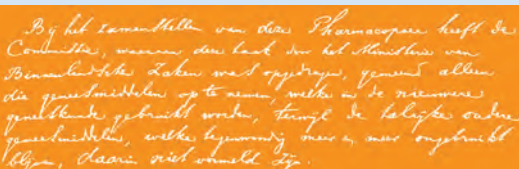 Bij het zamenstellen van deze Pharmacopoea heeft de
Commissie, waaraan deze taak door het Ministerie van
Binnenlandsche Zaken was opgedragen, gemeend alleen
die geneesmiddelen op te nemen, welke in de nieuwere
geneeskunde gebruikt worden, terwijl de talrijke oudere
geneesmiddelen, welke tegenwoordig meer en meer ongebruikt
blijven, daarin niet vermeld zijn.